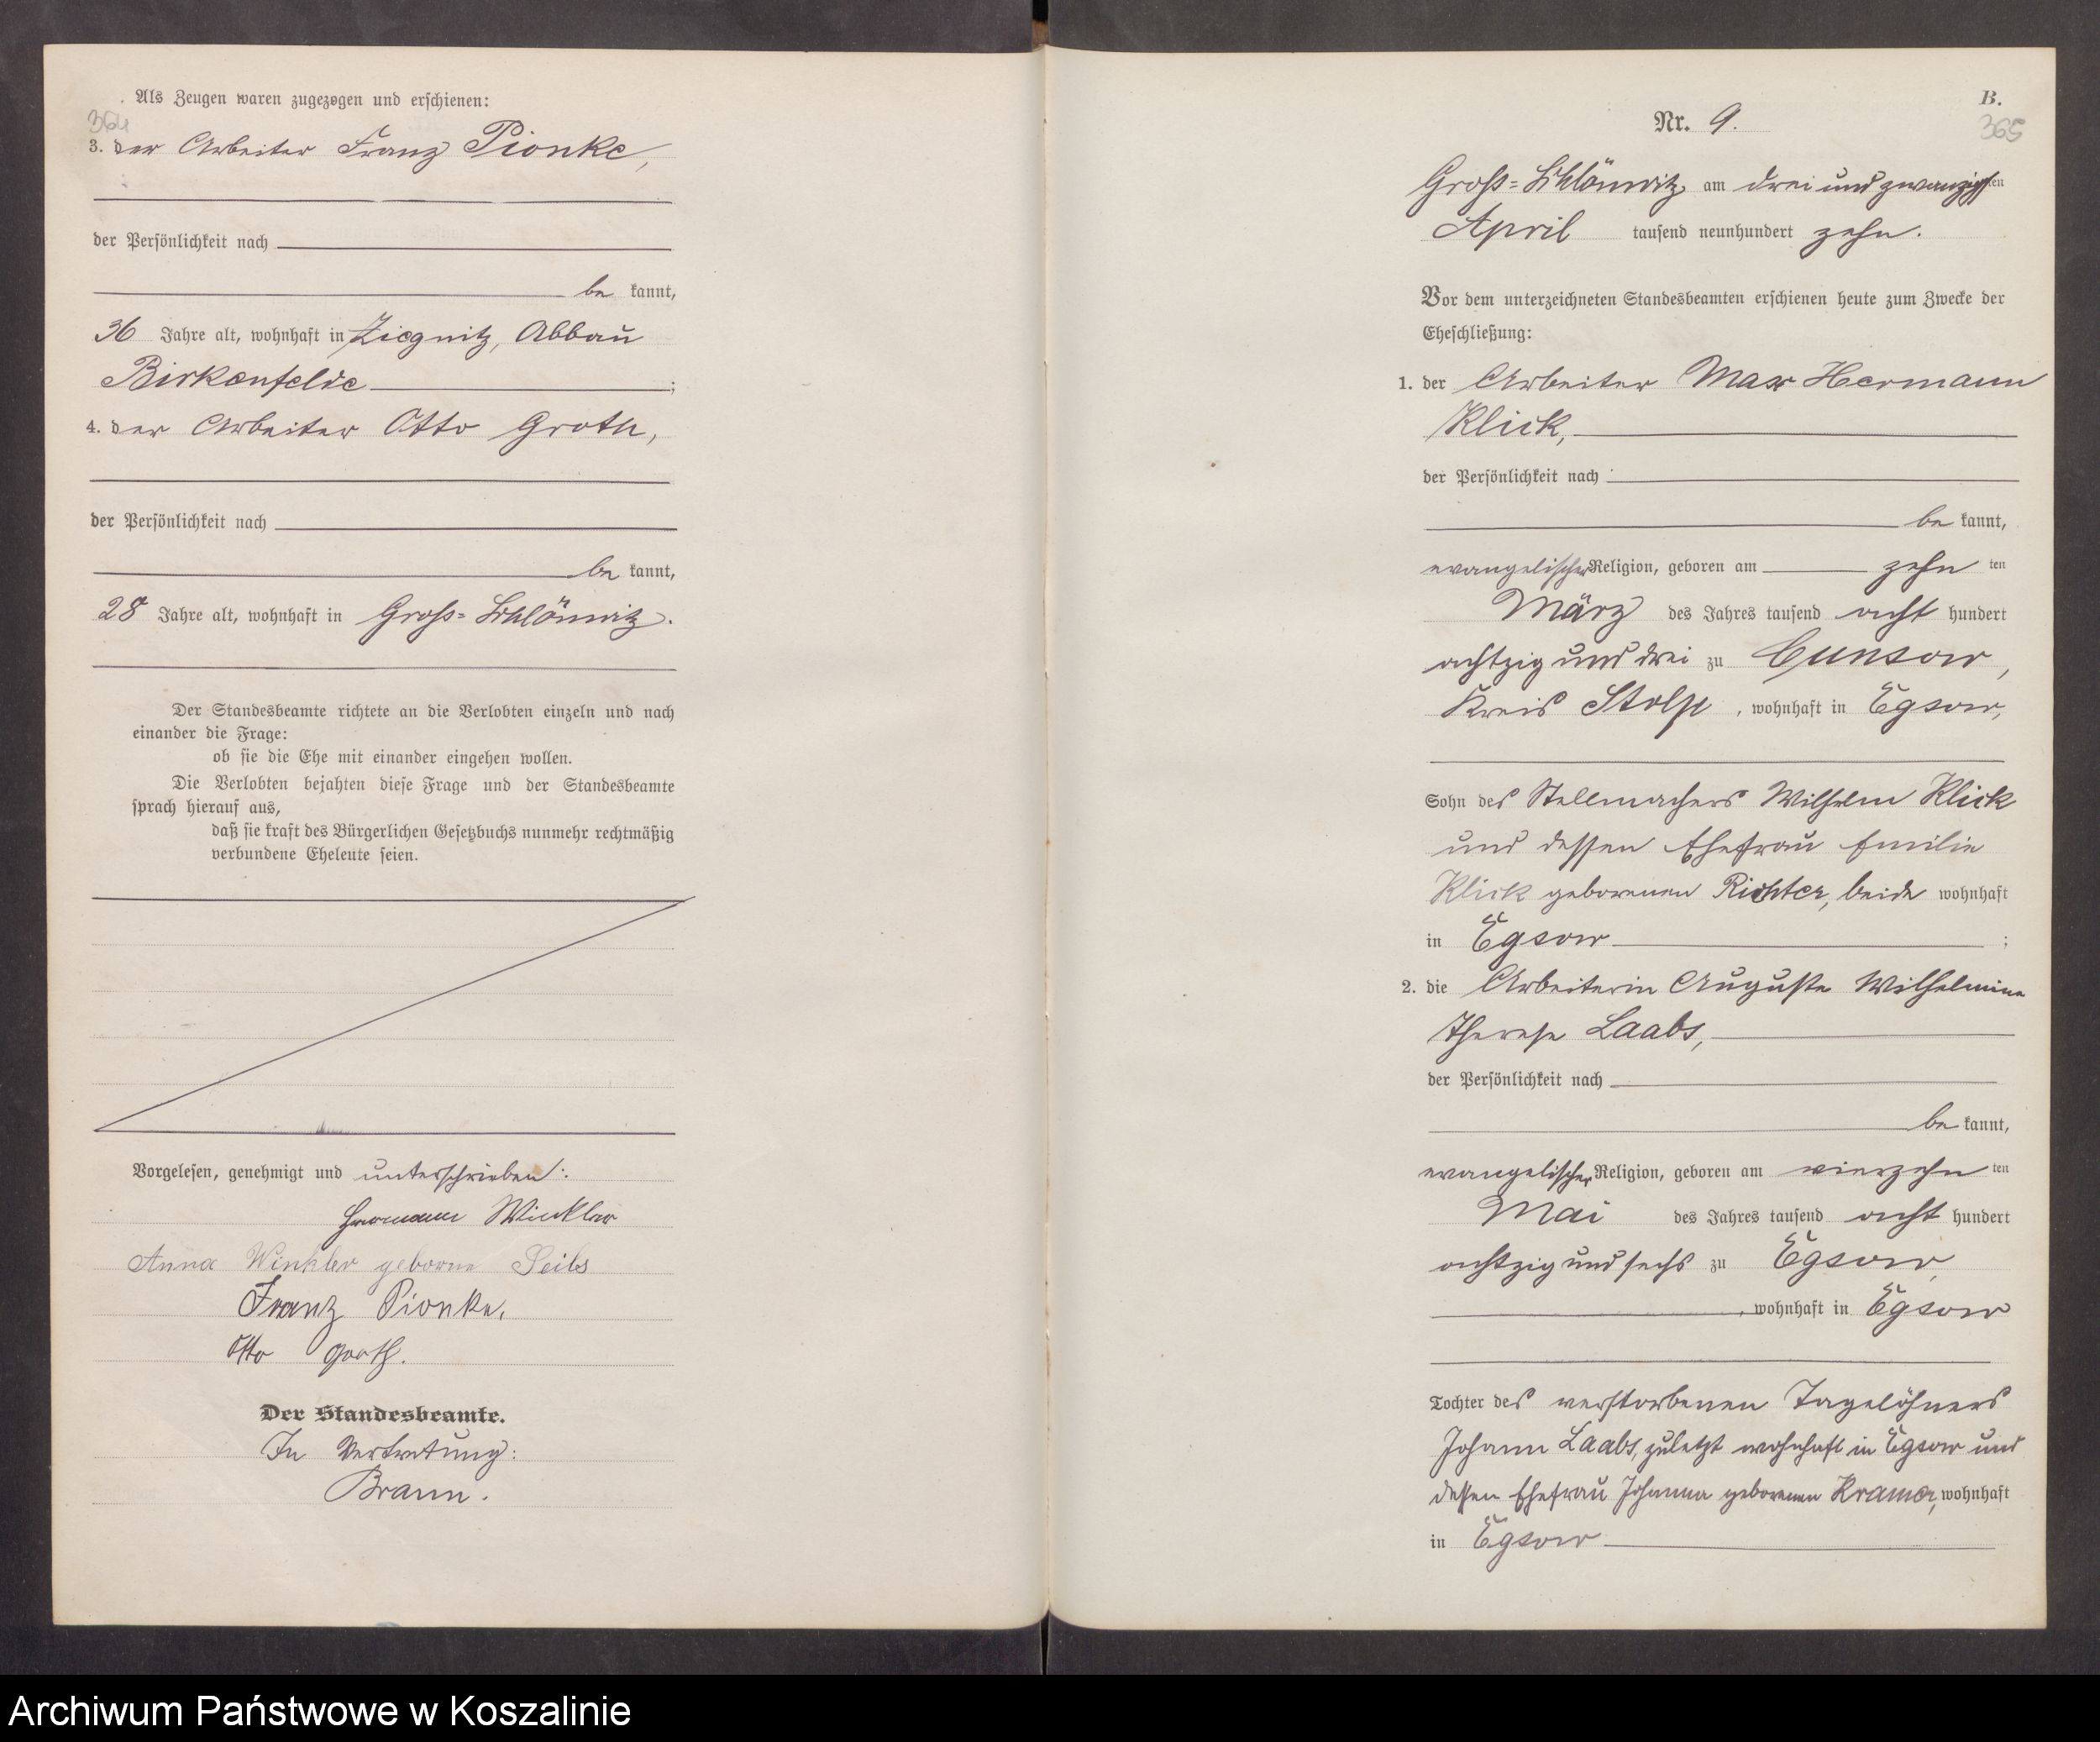 Als Zeugen waren zugezogen und erschienen:
364
3. der Arbeiter Franz Pionke,
der Persönlichkeit nach
be kannt,
36 Jahre alt, wohnhaft in Ziegnitz, Abbau
Birkenfelde ;
4. der Arbeiter Otto Groth,
der Persönlichkeit nach
be kannt,
28 Jahre alt, wohnhaft in Groß-Schlönwitz.
Der Standesbeamte richtete an die Verlobten einzeln und nach
einander die Frage:
ob sie die Ehe mit einander eingehen wollen.
Die Verlobten bejahten diese Frage und der Standesbeamte
sprach hierauf aus,
daß sie kraft des Bürgerlichen Gesetzbuchs nunmehr rechtmäßig
verbundene Eheleute seien.
Vorgelesen, genehmigt und unterschrieben:
Hermann Winkler
Anna Winkler geborne Seils
Franz Pionke.
Otto Groth.
Der Standesbeamte.
In Vertretung:
Braun.
B.
365
Nr. 9.
Groß-Schlönwitz am drei und zwanzigsten
April tausend neunhundert zehn.
Vor dem unterzeichneten Standesbeamten erschienen heute zum Zwecke der
Eheschließung:
1. der Arbeiter Max Hermann
Klick,
der Persönlichkeit nach
be kannt,
evangelischer Religion, geboren am zehn ten
März des Jahres tausend acht hundert
achtzig und drei zu Cunsow,
Kreis Stolp, wohnhaft in Egsow,
Sohn des Stellmachers Wilhelm Klick
und dessen Ehefrau Emilie
Klick geborenen Richter, beide wohnhaft
in Egsow ;
2. die Arbeiterin Auguste Wilhelmine
Therese Laabs,
der Persönlichkeit nach
be kannt,
evangelischer Religion, geboren am vierzehn ten
Mai des Jahres tausend acht hundert
achtzig und sechs zu Egsow,
, wohnhaft in Egsow
Tochter des verstorbenen Tagelöhners
Johann Laabs, zuletzt wohnhaft in Egsow und
dessen Ehefrau Johanna geborenen Kramer, wohnhaft
in Egsow
Archiwum Państwowe w Koszalinie